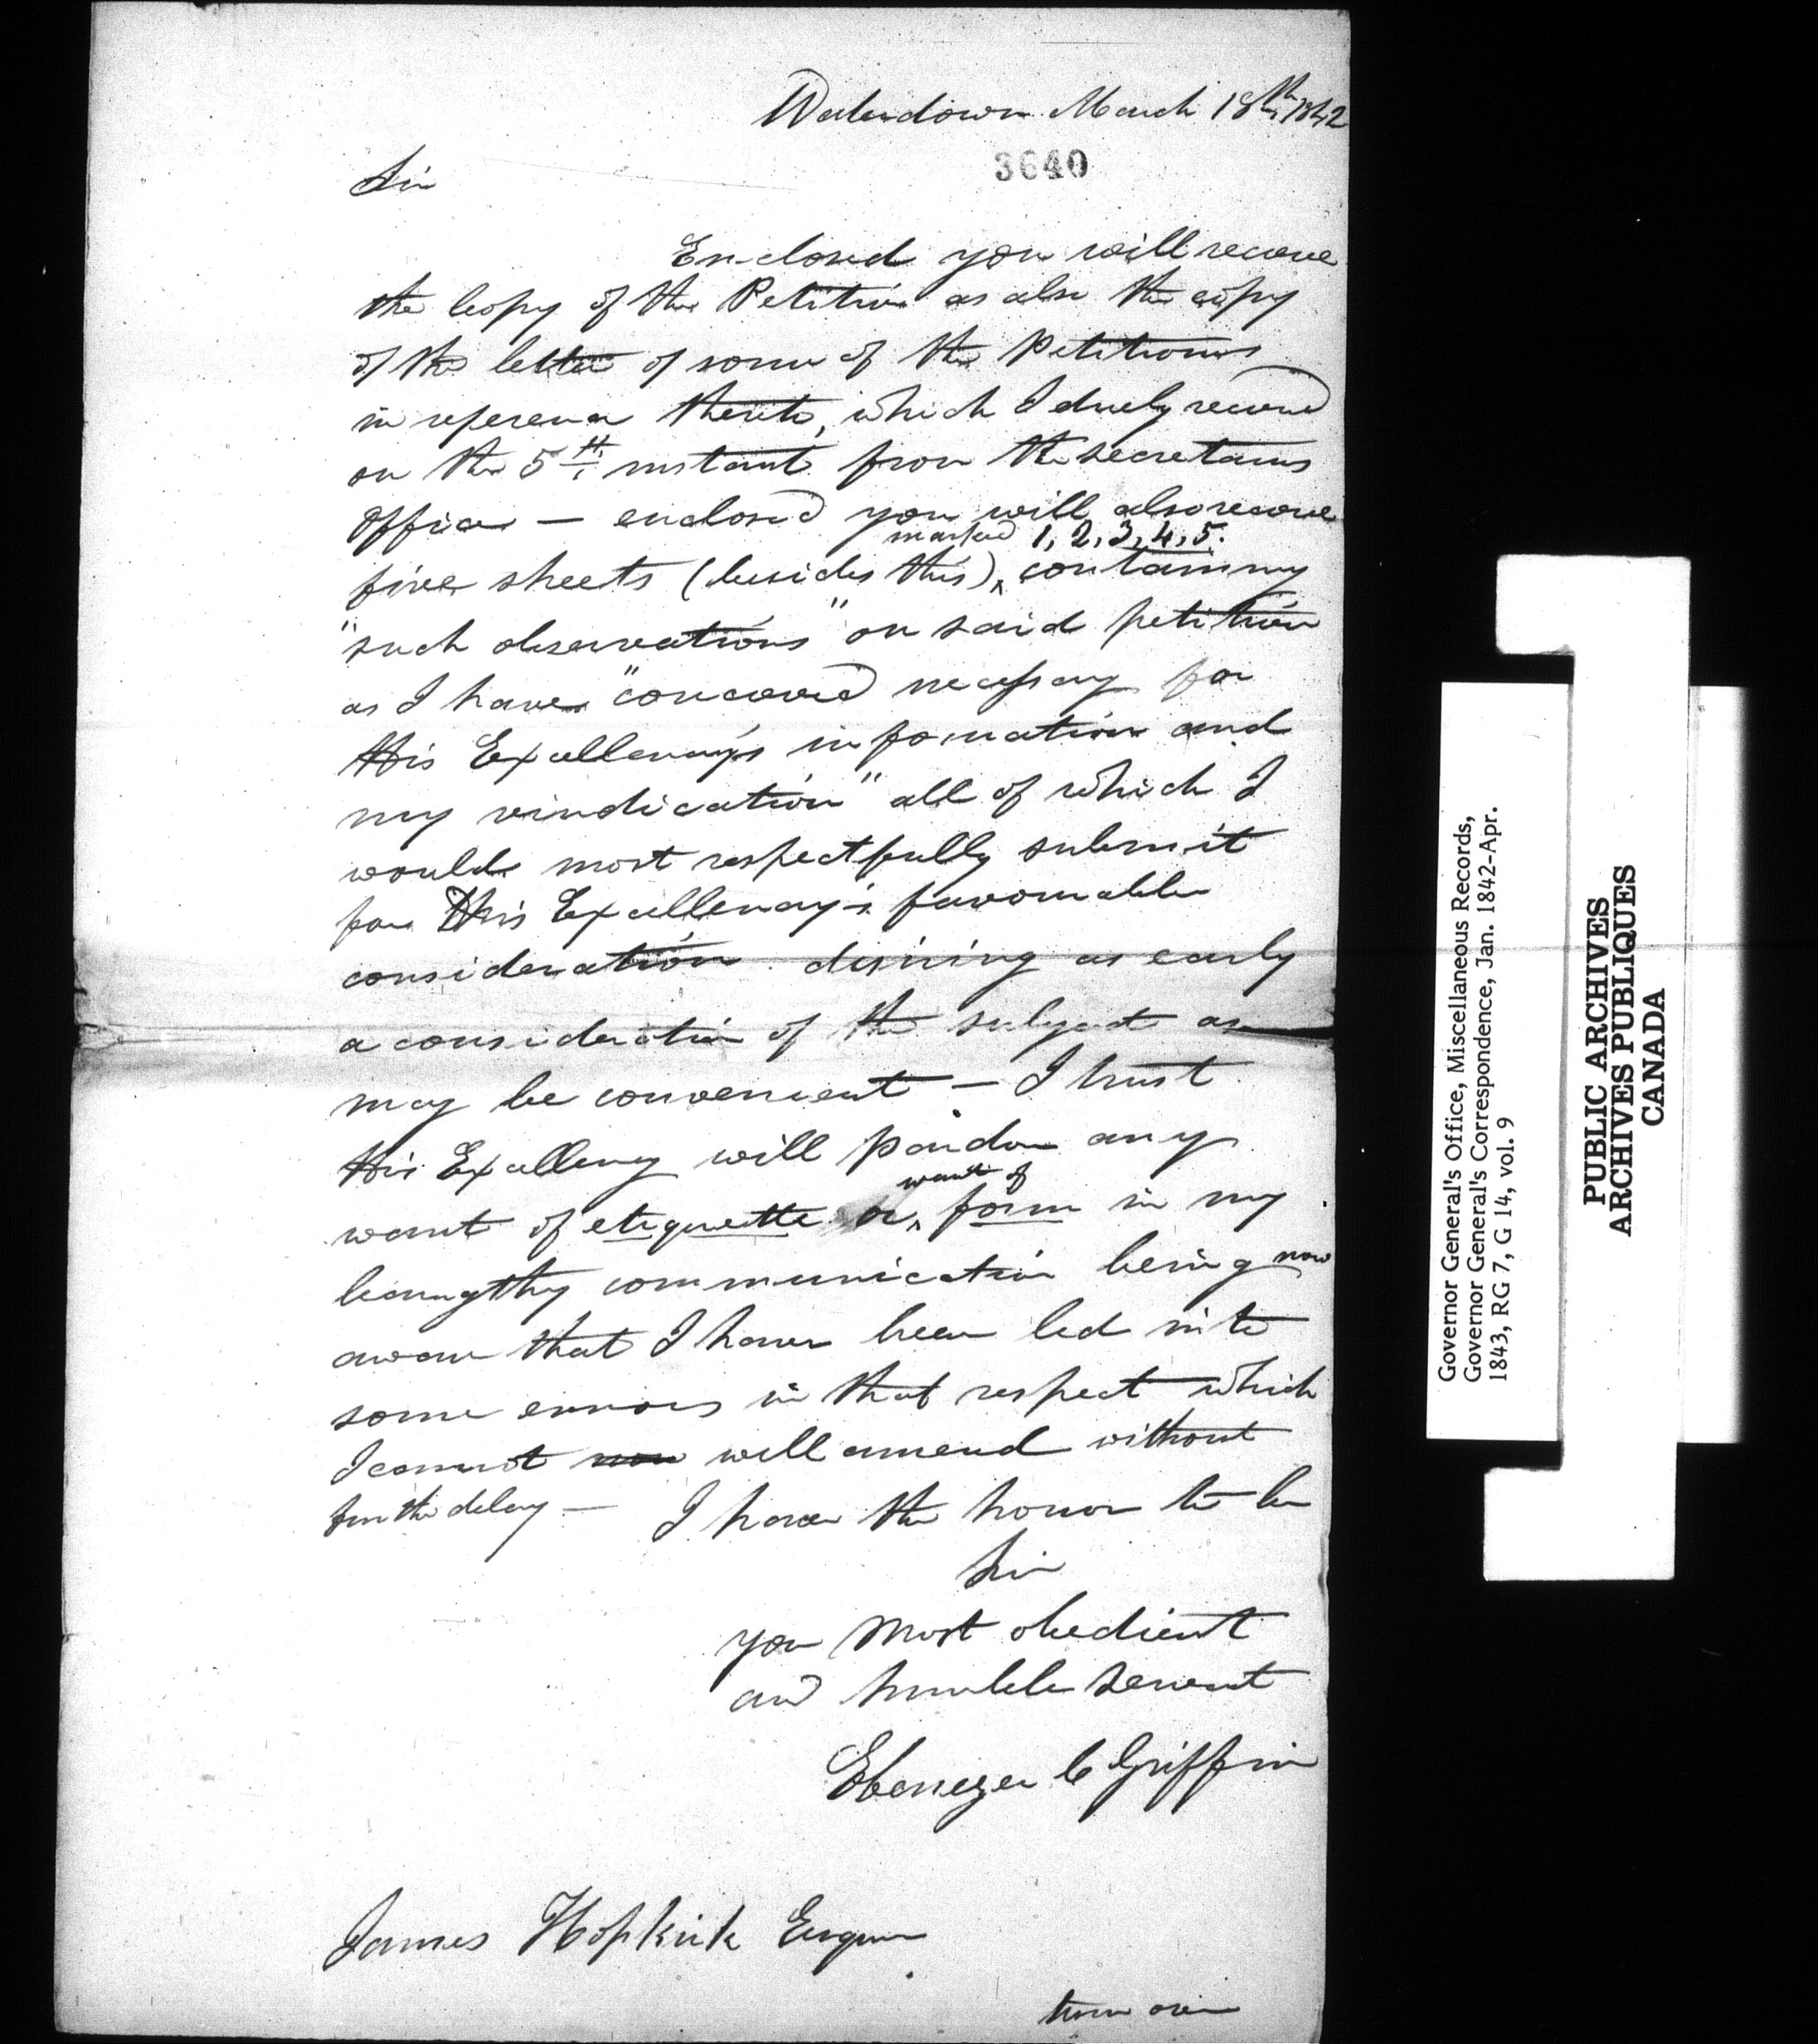 Waterdown March 18th 1842
3640
Sir
Enclosed you will receive
the Copy of the Petition as also the copy
of the letter of some of the Petitioners
in reference thereto, which I duly received
on the 5th instant from the secretarys
Office — enclosed you will also receive
marked 1, 2, 3, 4, 5.
five sheets (besides this) ^ containing
"such observations" on said petition
as I have "conceived necessary for
His Excellency's information and
my vindication" all of which I
would most respectfully submit
for His Excellency's favourable
consideration desiring as early
a consideration of the subject as
may be convenient — I trust
His Excellency will pardon any
want of
want of etiquette or ^ form in my
leangthy communication being now
aware that I have been led into
some errors in that respect which
I cannot now well amend without
further delay — I have the honor to be
Sir
your most obedient
and humble servant
Ebenezer C Griffin
James Hopkirk Esquire
turn over
Governor General's Office, Miscellaneous Records,
Governor General's Correspondence, Jan. 1842-Apr.
1843, RG 7, G 14, vol. 9
PUBLIC ARCHIVES
ARCHIVES PUBLIQUES
CANADA